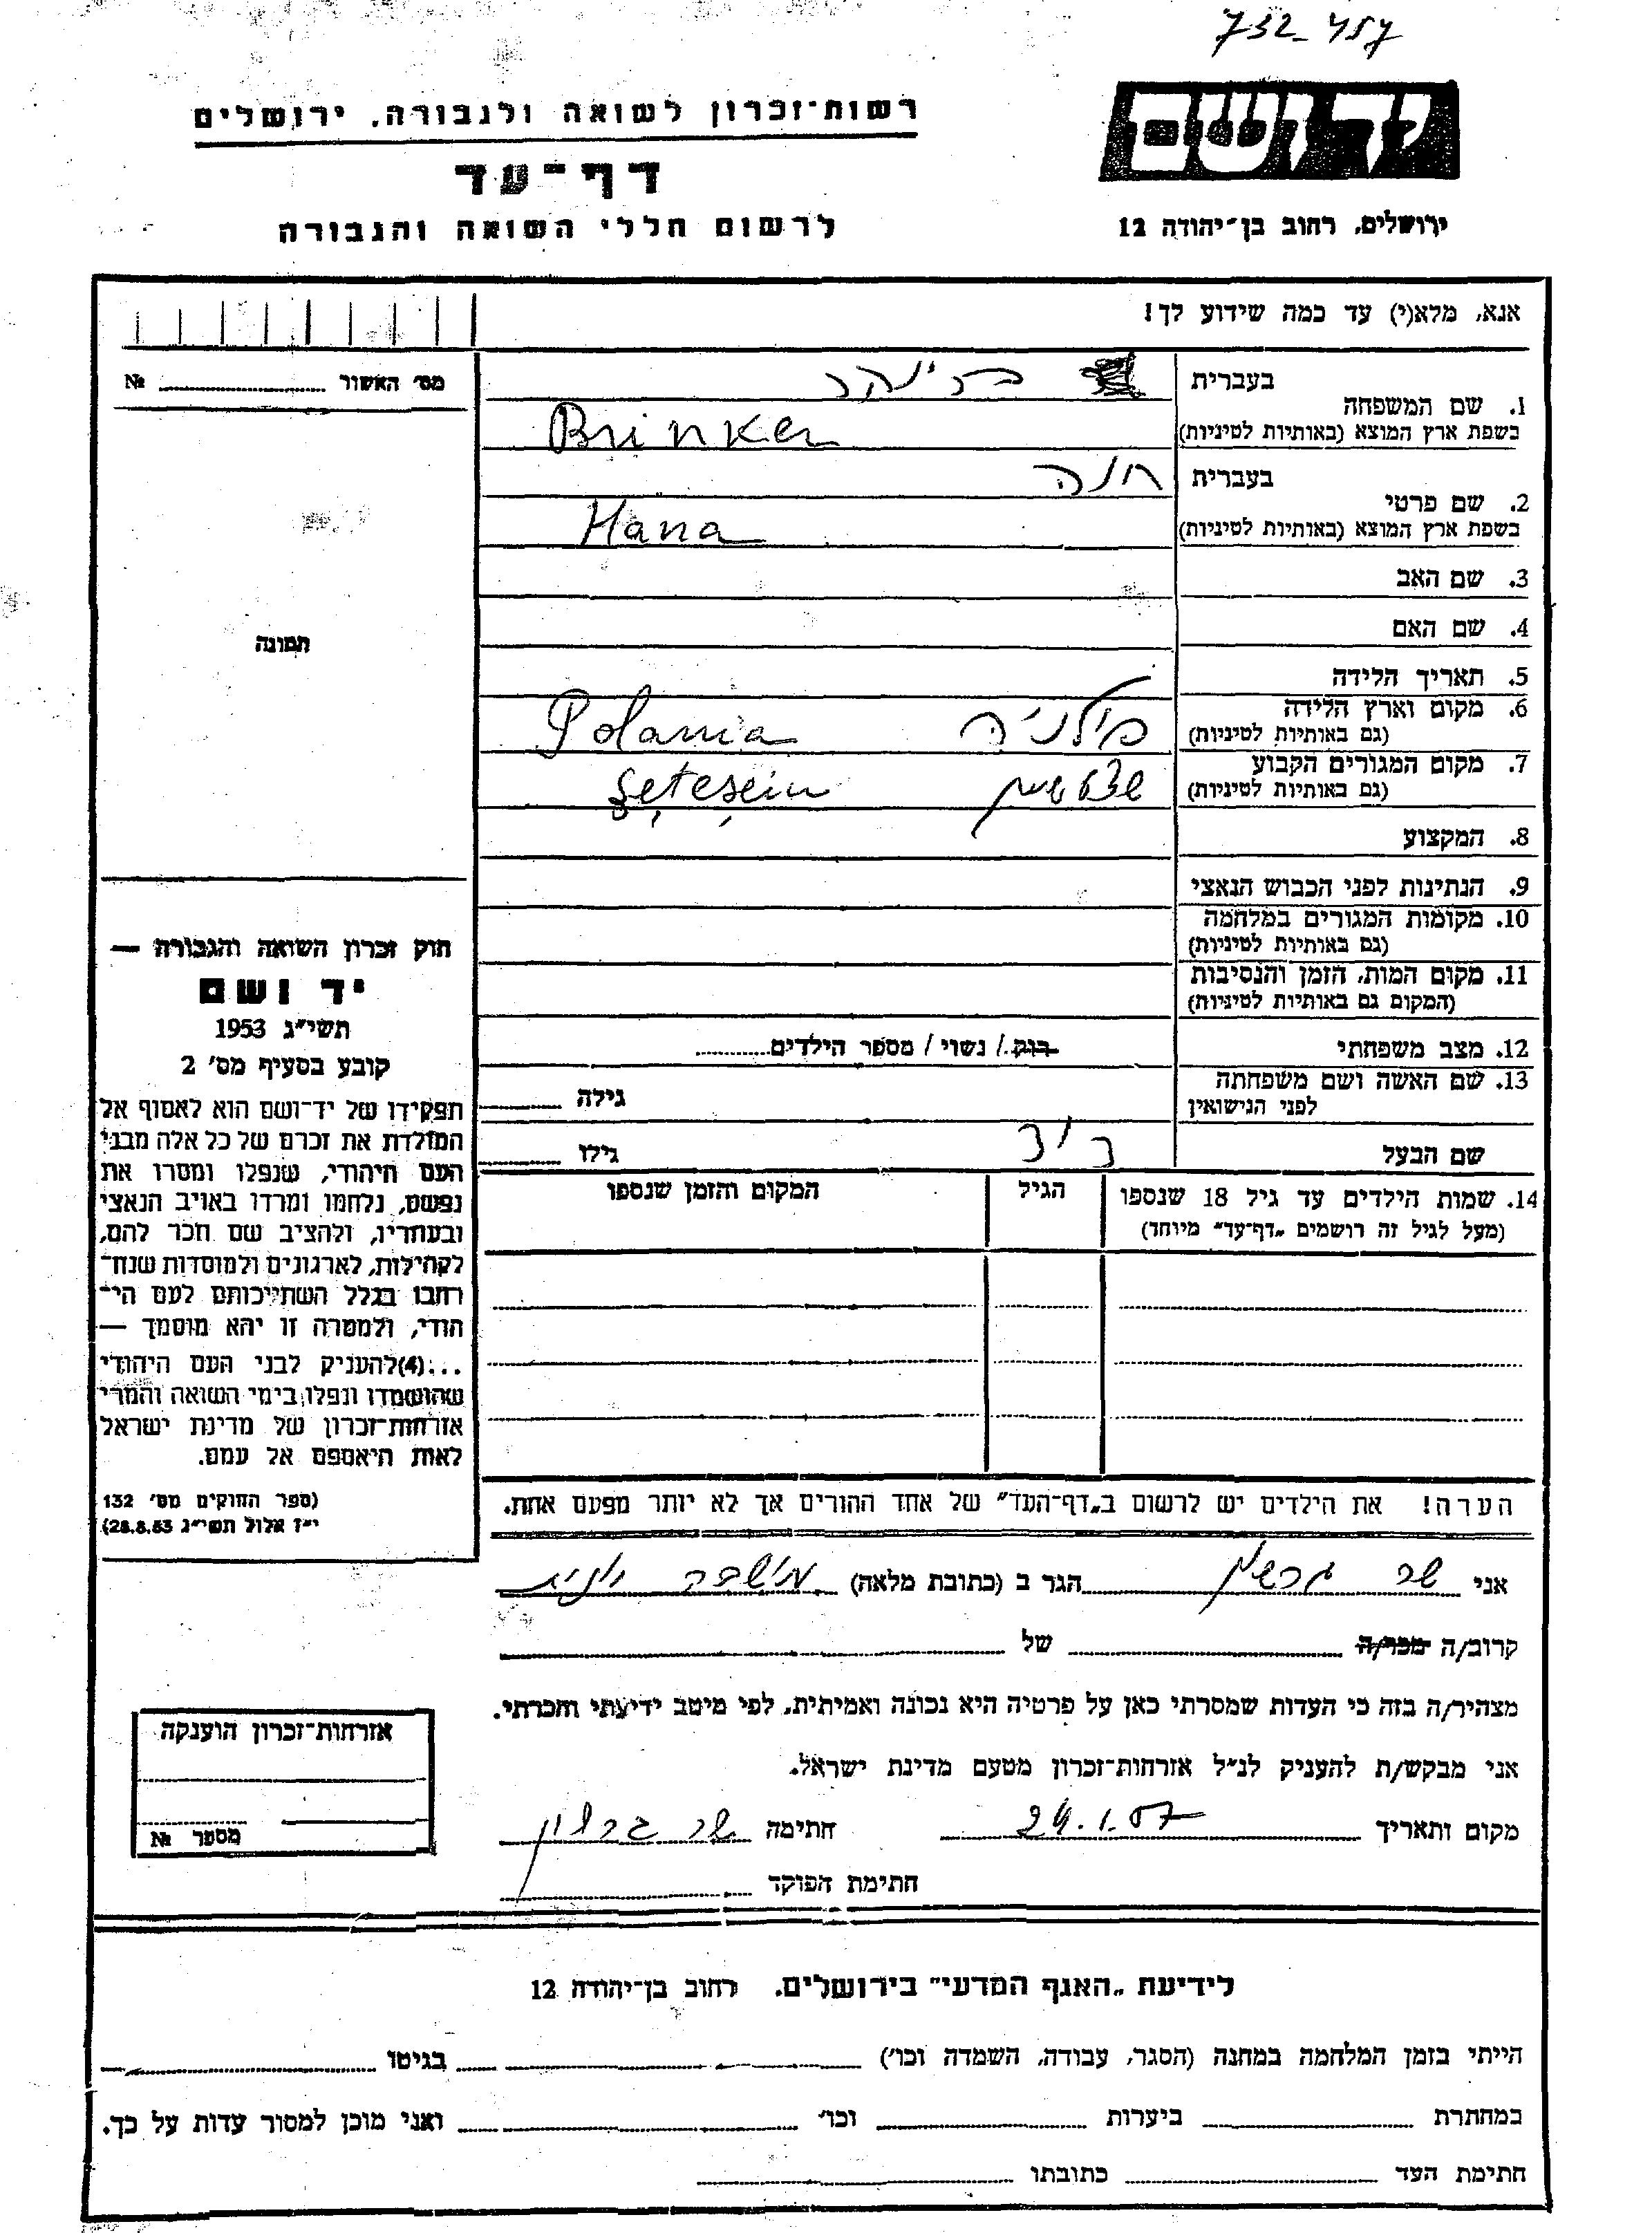 732-457
יד ושם
רשות־זכרון לשואה ולגבורה, ירושלים
דף־עד
לרשום חללי השואה והגבורה
ירושלים, רחוב בן־יהודה 12
אנא, מלא(י) עד כמה שידוע לך!
מס׳ האשור № 
תמונה
1. שם המשפחה
בעברית ברינקר
בשפת ארץ המוצא (באותיות לטיניות) Brinker
2. שם פרטי
בעברית חנה
בשפת ארץ המוצא (באותיות לטיניות) Hana
3. שם האב
4. שם האם
5. תאריך הלידה
6. מקום וארץ הלידה
(גם באותיות לטיניות) פולניה Polania
7. מקום המגורים הקבוע
(גם באותיות לטיניות)
8. המקצוע
9. הנתינות לפני הכבוש הנאצי
10. מקומות המגורים במלחמה
(גם באותיות לטיניות)
11. מקום המות, הזמן והנסיבות
(המקום גם באותיות לטיניות)
12. מצב משפחתי רוק / נשוי / מספר הילדים
13. שם האשה ושם משפחתה
לפני הנישואין גילה
שם הבעל גילו
14. שמות הילדים עד גיל 18 שנספו הגיל המקום והזמן שנספו
(מעל לגיל זה רושמים „דף־עד" מיוחד)
הערה! את הילדים יש לרשום ב„דף־העד" של אחד ההורים אך לא יותר מפעם אחת.
חוק זכרון השואה והגבורה —
יד ושם
תשי"ג 1953
קובע בסעיף מס׳ 2
תפקידו של יד־ושם הוא לאסוף אל
המולדת את זכרם של כל אלה מבני
העם היהודי, שנפלו ומסרו את
נפשם, נלחמו ומרדו באויב הנאצי
ובעוזריו, ולהציב שם וזכר להם,
לקהילות, לארגונים ולמוסדות שנח־
רבו בגלל השתייכותם לעם הי־
הודי, ולמטרה זו יהא מוסמך —
...(4)להעניק לבני העם היהודי
שהושמדו ונפלו בימי השואה והמרי
אזרחות־זכרון של מדינת ישראל
לאות היאספם אל עמם.
(ספר החוקים מס׳ 132
י"ז אלול תשי"ג 28.8.53)
אני שר גרשון הגר ב (כתובת מלאה)
קרוב/ה מכר/ה של
מצהיר/ה בזה כי העדות שמסרתי כאן על פרטיה היא נכונה ואמיתית, לפי מיטב ידיעתי והכרתי.
אני מבקש/ת להעניק לנ"ל אזרחות־זכרון מטעם מדינת ישראל.
מקום ותאריך 24.1.57 חתימה שר גרשון
חתימת הפוקד
אזרחות־זכרון הוענקה
מספר №
לידיעת „האגף המדעי" בירושלים, רחוב בן־יהודה 12
הייתי בזמן המלחמה במחנה (הסגר, עבודה, השמדה וכו׳) בגיטו
במחתרת ביערות וכו׳ ואני מוכן למסור עדות על כך.
חתימת העד כתובתו